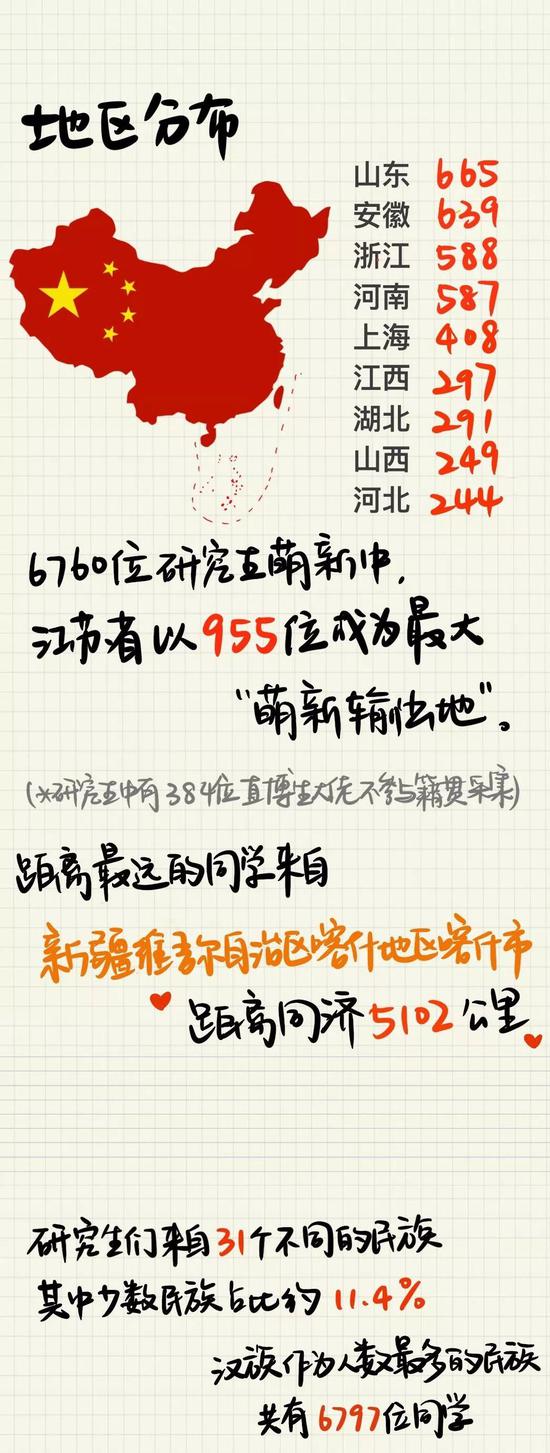 地区分布
山东 665
安徽 639
浙江 588
河南 587
上海 408
江西 297
湖北 291
山西 249
河北 244
6760位研究生萌新中,
江苏省以955位成为最大
“萌新输出地”。
(*研究生中有384位直博生大佬不参与籍贯采集)
距离最远的同学来自
新疆维吾尔自治区喀什地区喀什市
距离同济5102公里
研究生们来自31个不同的民族
其中少数民族占比约11.4%
汉族作为人数最多的民族
共有6797位同学